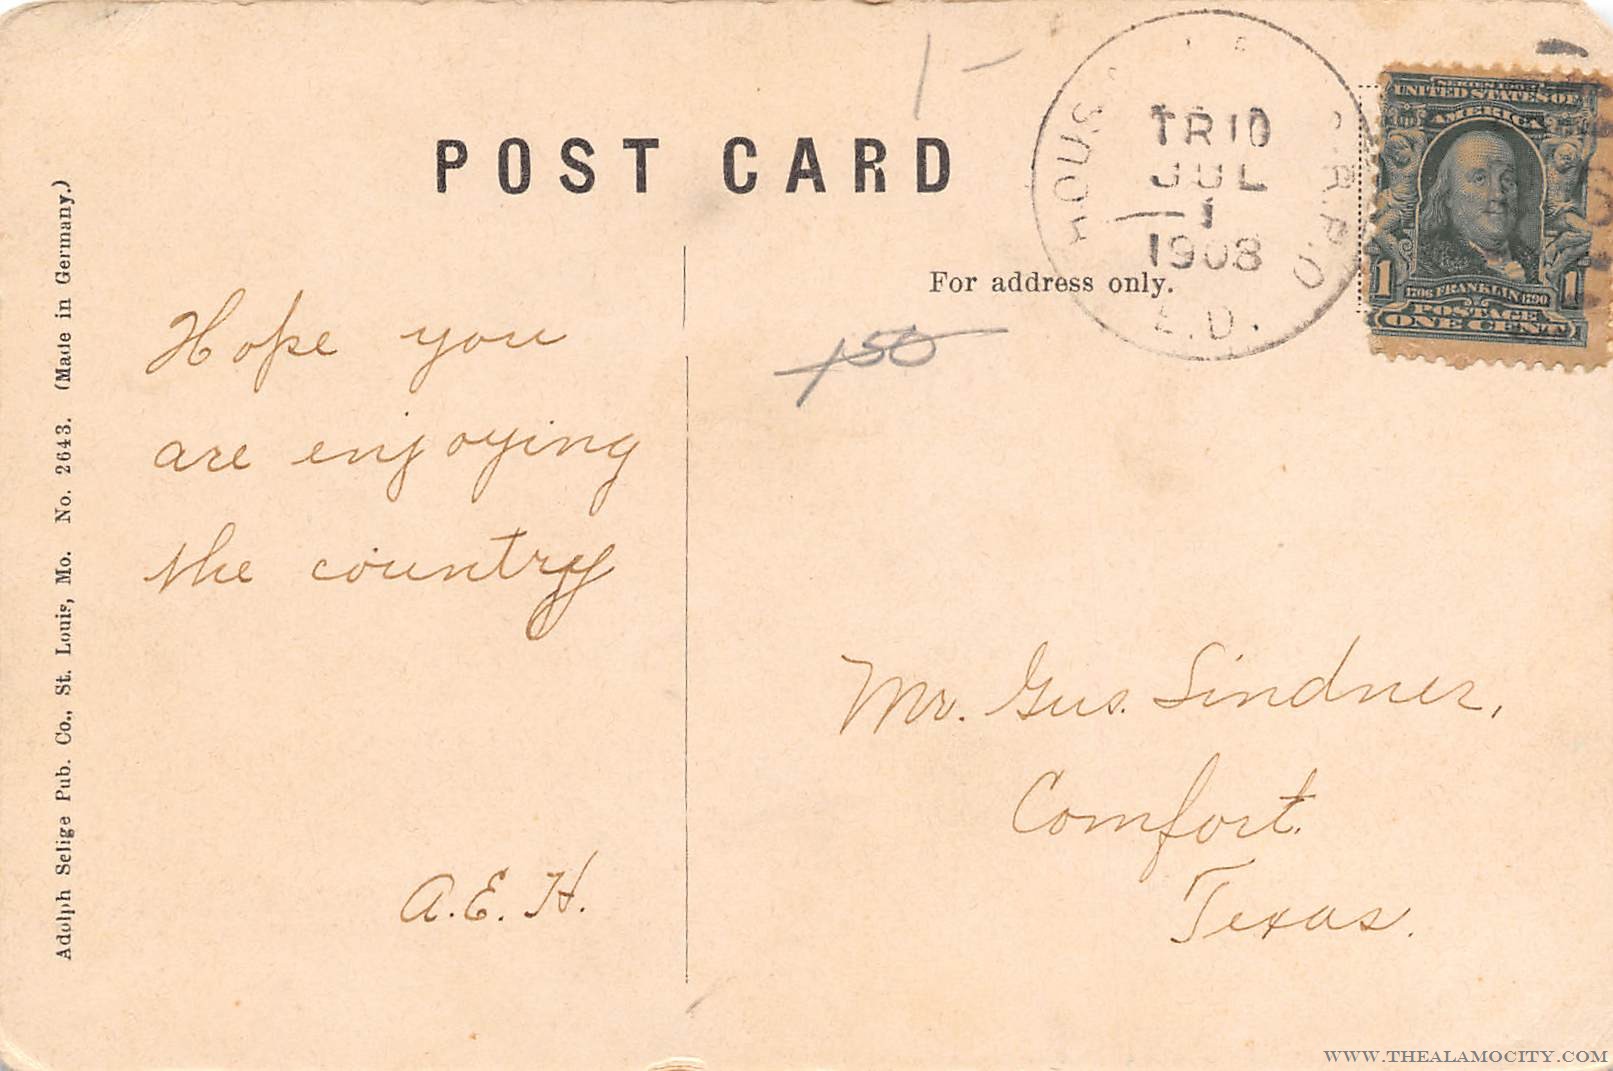 POST CARD
For address only.
1-
150
TR 10
JUL
1
1908
HOUS
R.P.O
E.D.
SERIES 1902
UNITED STATES OF
AMERICA
1 1
1706 FRANKLIN 1790
POSTAGE
ONE CENT
Adolph Selige Pub. Co., St. Louis, Mo. No. 2643. (Made in Germany.)
Hope you
are enjoying
the country
A.E.H.
Mr. Gus. Lindner,
Comfort.
Texas.
WWW.THEALAMOCITY.COM